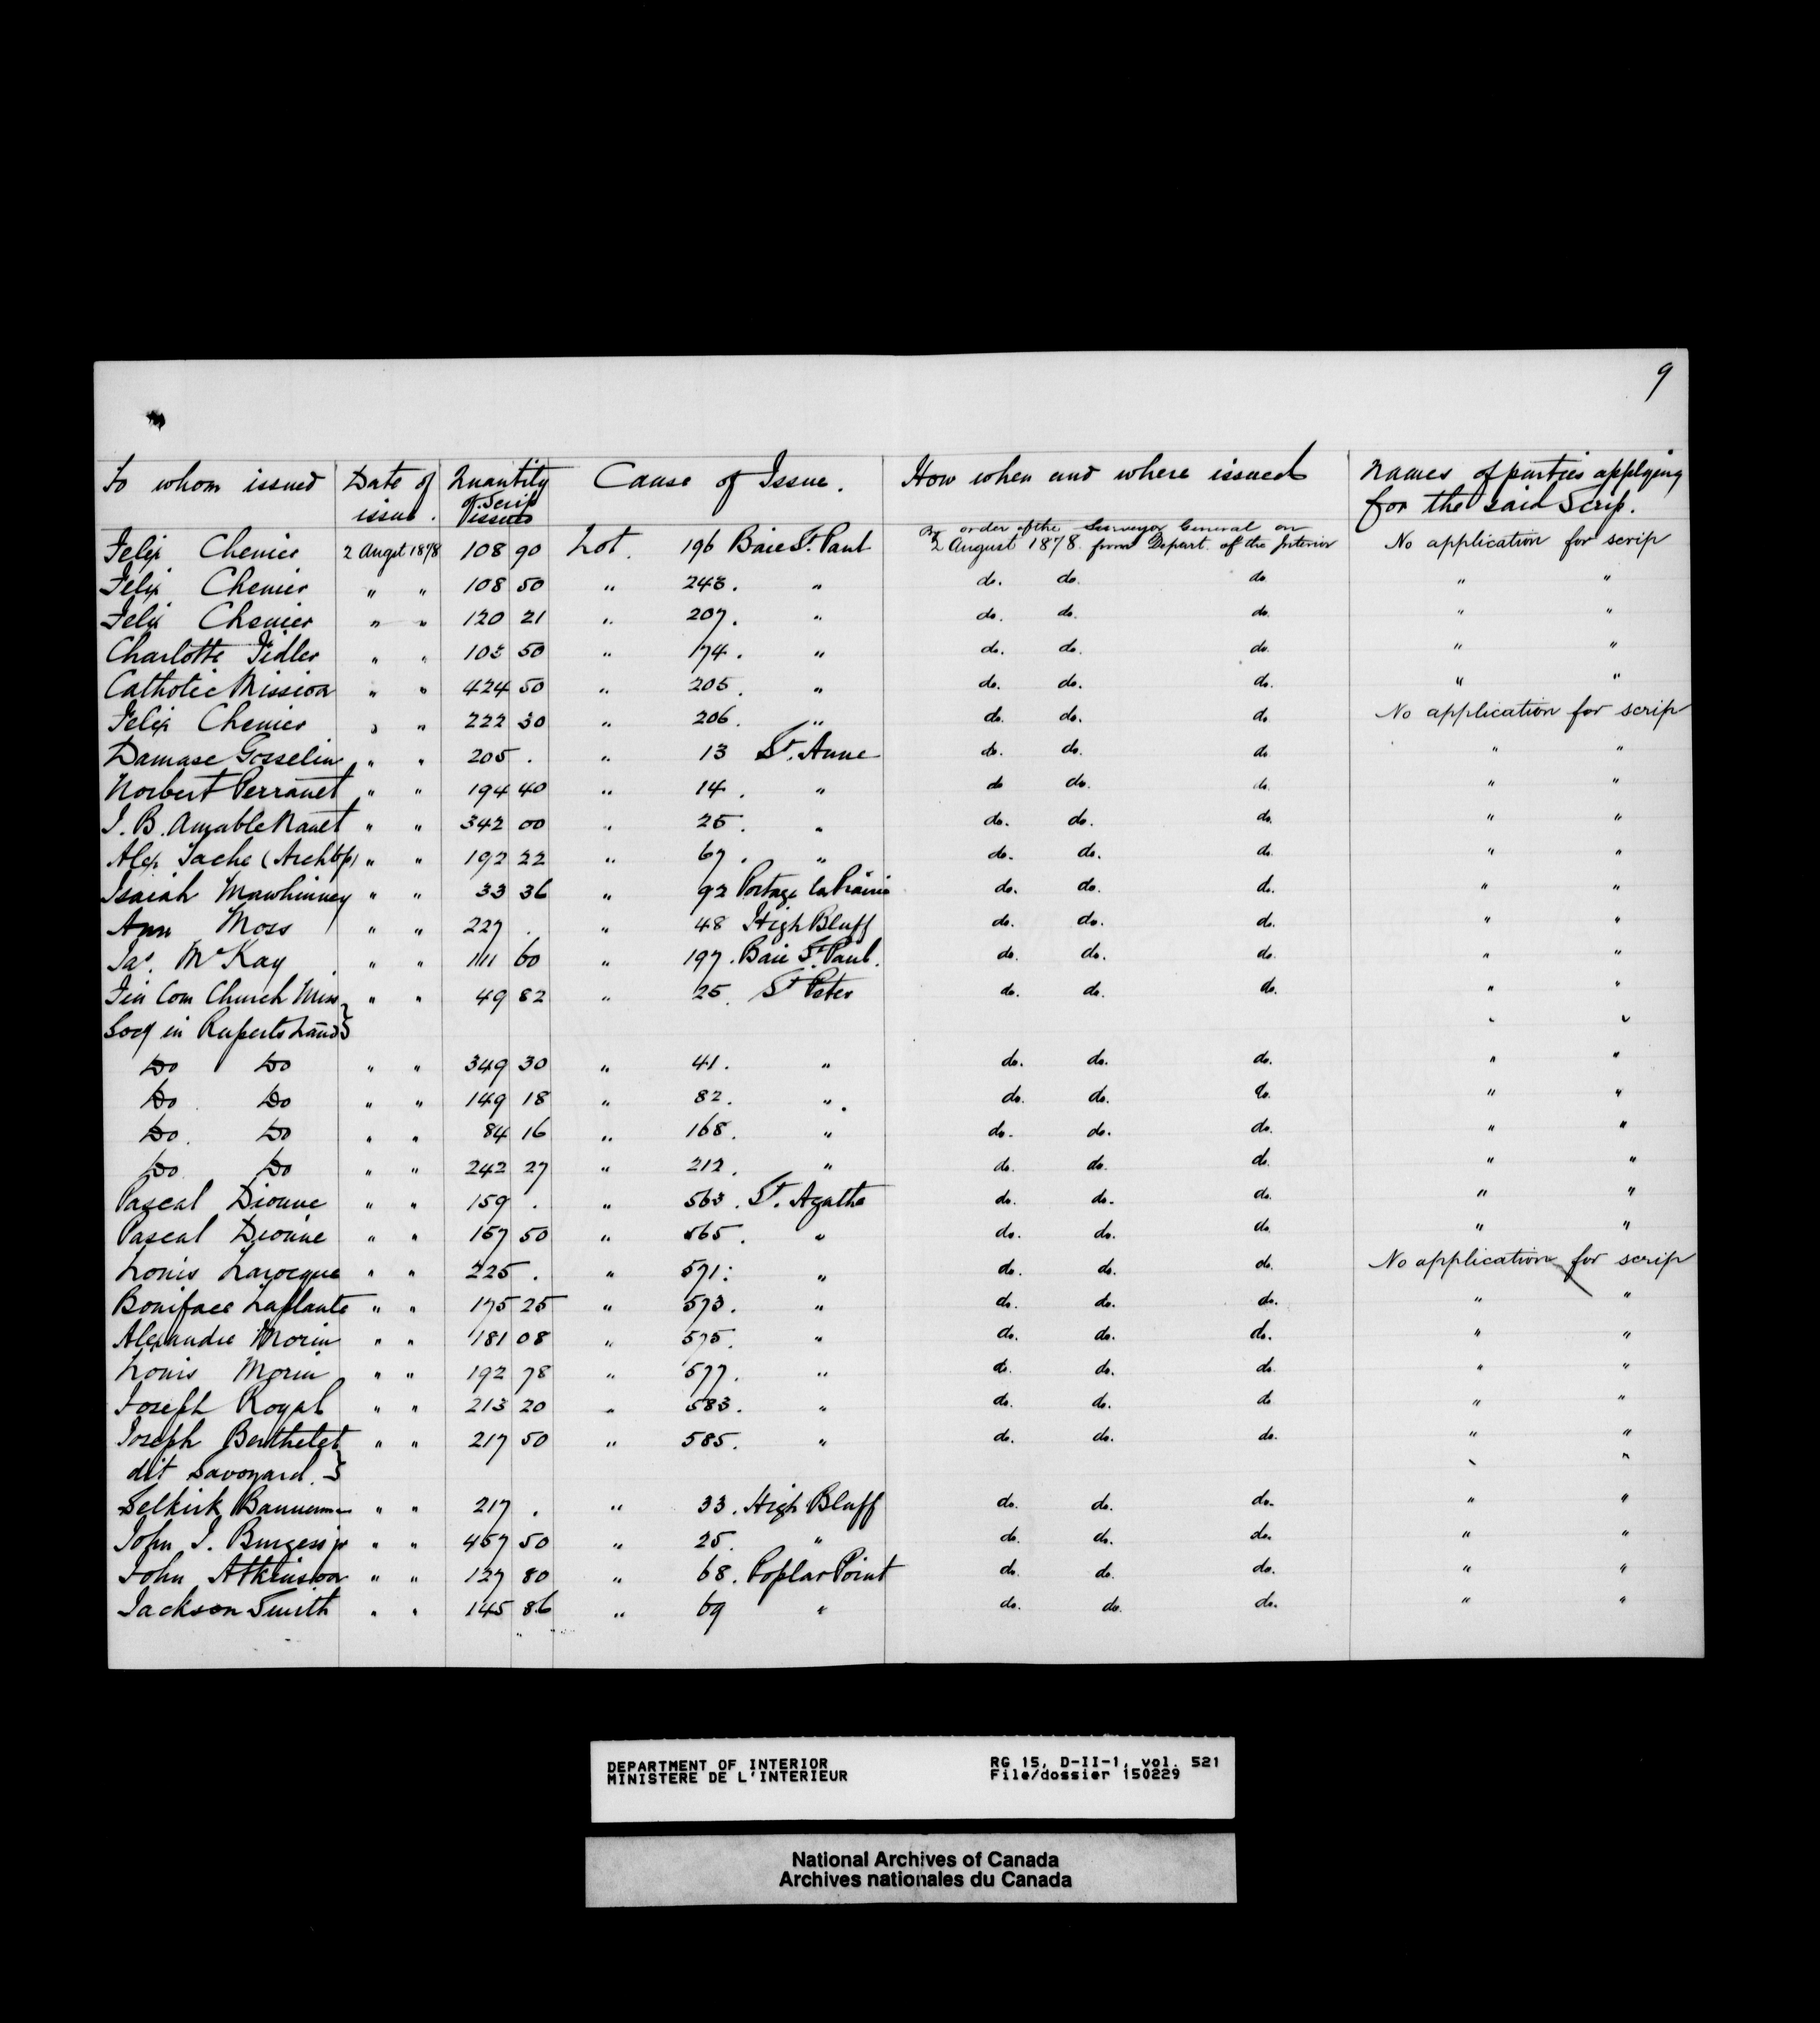 9
To whom issued Date of issue. Quantity of Scrip issued Cause of Issue. How when and where issued Names of parties applying for the said Scrip.
Felix Chenier 2 Augst 1878 108 90 Lot. 196 Baie St. Paul By order of the Surveyor General on 2 August 1878. from Depart. of the Interior No application for scrip
Felix Chenier " " 108 50 " 243. " do. do. do. " "
Felix Chenier " " 120 21 " 207. " do. do. do. " "
Charlotte Fidler " " 103 50 " 174. " do. do. do. " "
Catholic Mission " " 424 50 " 205. " do. do. do. " "
Felix Chenier " " 222 30 " 206. " do. do. do. No application for scrip
Damase Gosselin " " 205 . " 13 St. Anne do. do. do. " "
Norbert Perranet " " 194 40 " 14. " do do. do. " "
J. B. Amable Nanet " " 342 00 " 25. " do. do. do. " "
Alex. Tache (Archbp) " " 192 22 " 67. " do. do. do. " "
Isaiah Mawhinney " " 33 36 " 92 Portage la Prairie do. do. do. " "
Ann Moss " " 227 . " 48 High Bluff do. do. do. " "
Jas. McKay " " 111 60 " 197. Baie St. Paul. do. do. do. " "
Fin Com Church Miss " " 49 82 " 25. St Peter do. do. do. " "
Socy in Ruperts Land } " "
Do Do " " 349 30 " 41. " do. do. do. " "
Do. Do " " 149 18 " 82. " do. do. do. " "
Do. Do " " 84 16 " 168. " do. do. do. " "
Do Do " " 242 27 " 212. " do. do. do. " "
Pascal Dionne " " 159 . " 563. St. Agathe do. do. do. " "
Pascal Dionne " " 157 50 " 565. " do. do. do. " "
Louis Larocque " " 225 . " 571. " do. do. do. No application for scrip
Boniface Laplante " " 175 25 " 573. " do. do. do. " "
Alexandre Morin " " 181 08 " 575. " do. do. do. " "
Louis Morin " " 192 78 " 577. " do. do. do. " "
Joseph Royal " " 213 20 " 583. " do. do. do " "
Joseph Berthelet " " 217 50 " 585. " do. do. do. " "
dit Savoyard. } " "
Selkirk Bannerman " " 217 . " 33. High Bluff do. do. do. " "
John J. Burgess jr " " 457 50 " 25. " do. do. do. " "
John Atkinson " " 127 80 " 68. Poplar Point do. do. do. " "
Jackson Smith " " 145 86 " 69 " do. do. do. " "
DEPARTMENT OF INTERIOR RG 15, D-II-1, vol. 521
MINISTERE DE L'INTERIEUR File/dossier 150229
National Archives of Canada
Archives nationales du Canada